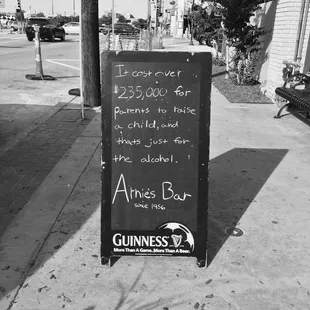 It cost over
$235,000 for
parents to raise
a child, and
thats just for
the alcohol.
Arnie's Bar
since 1956
GUINNESS
More Than A Game. More Than A Beer.